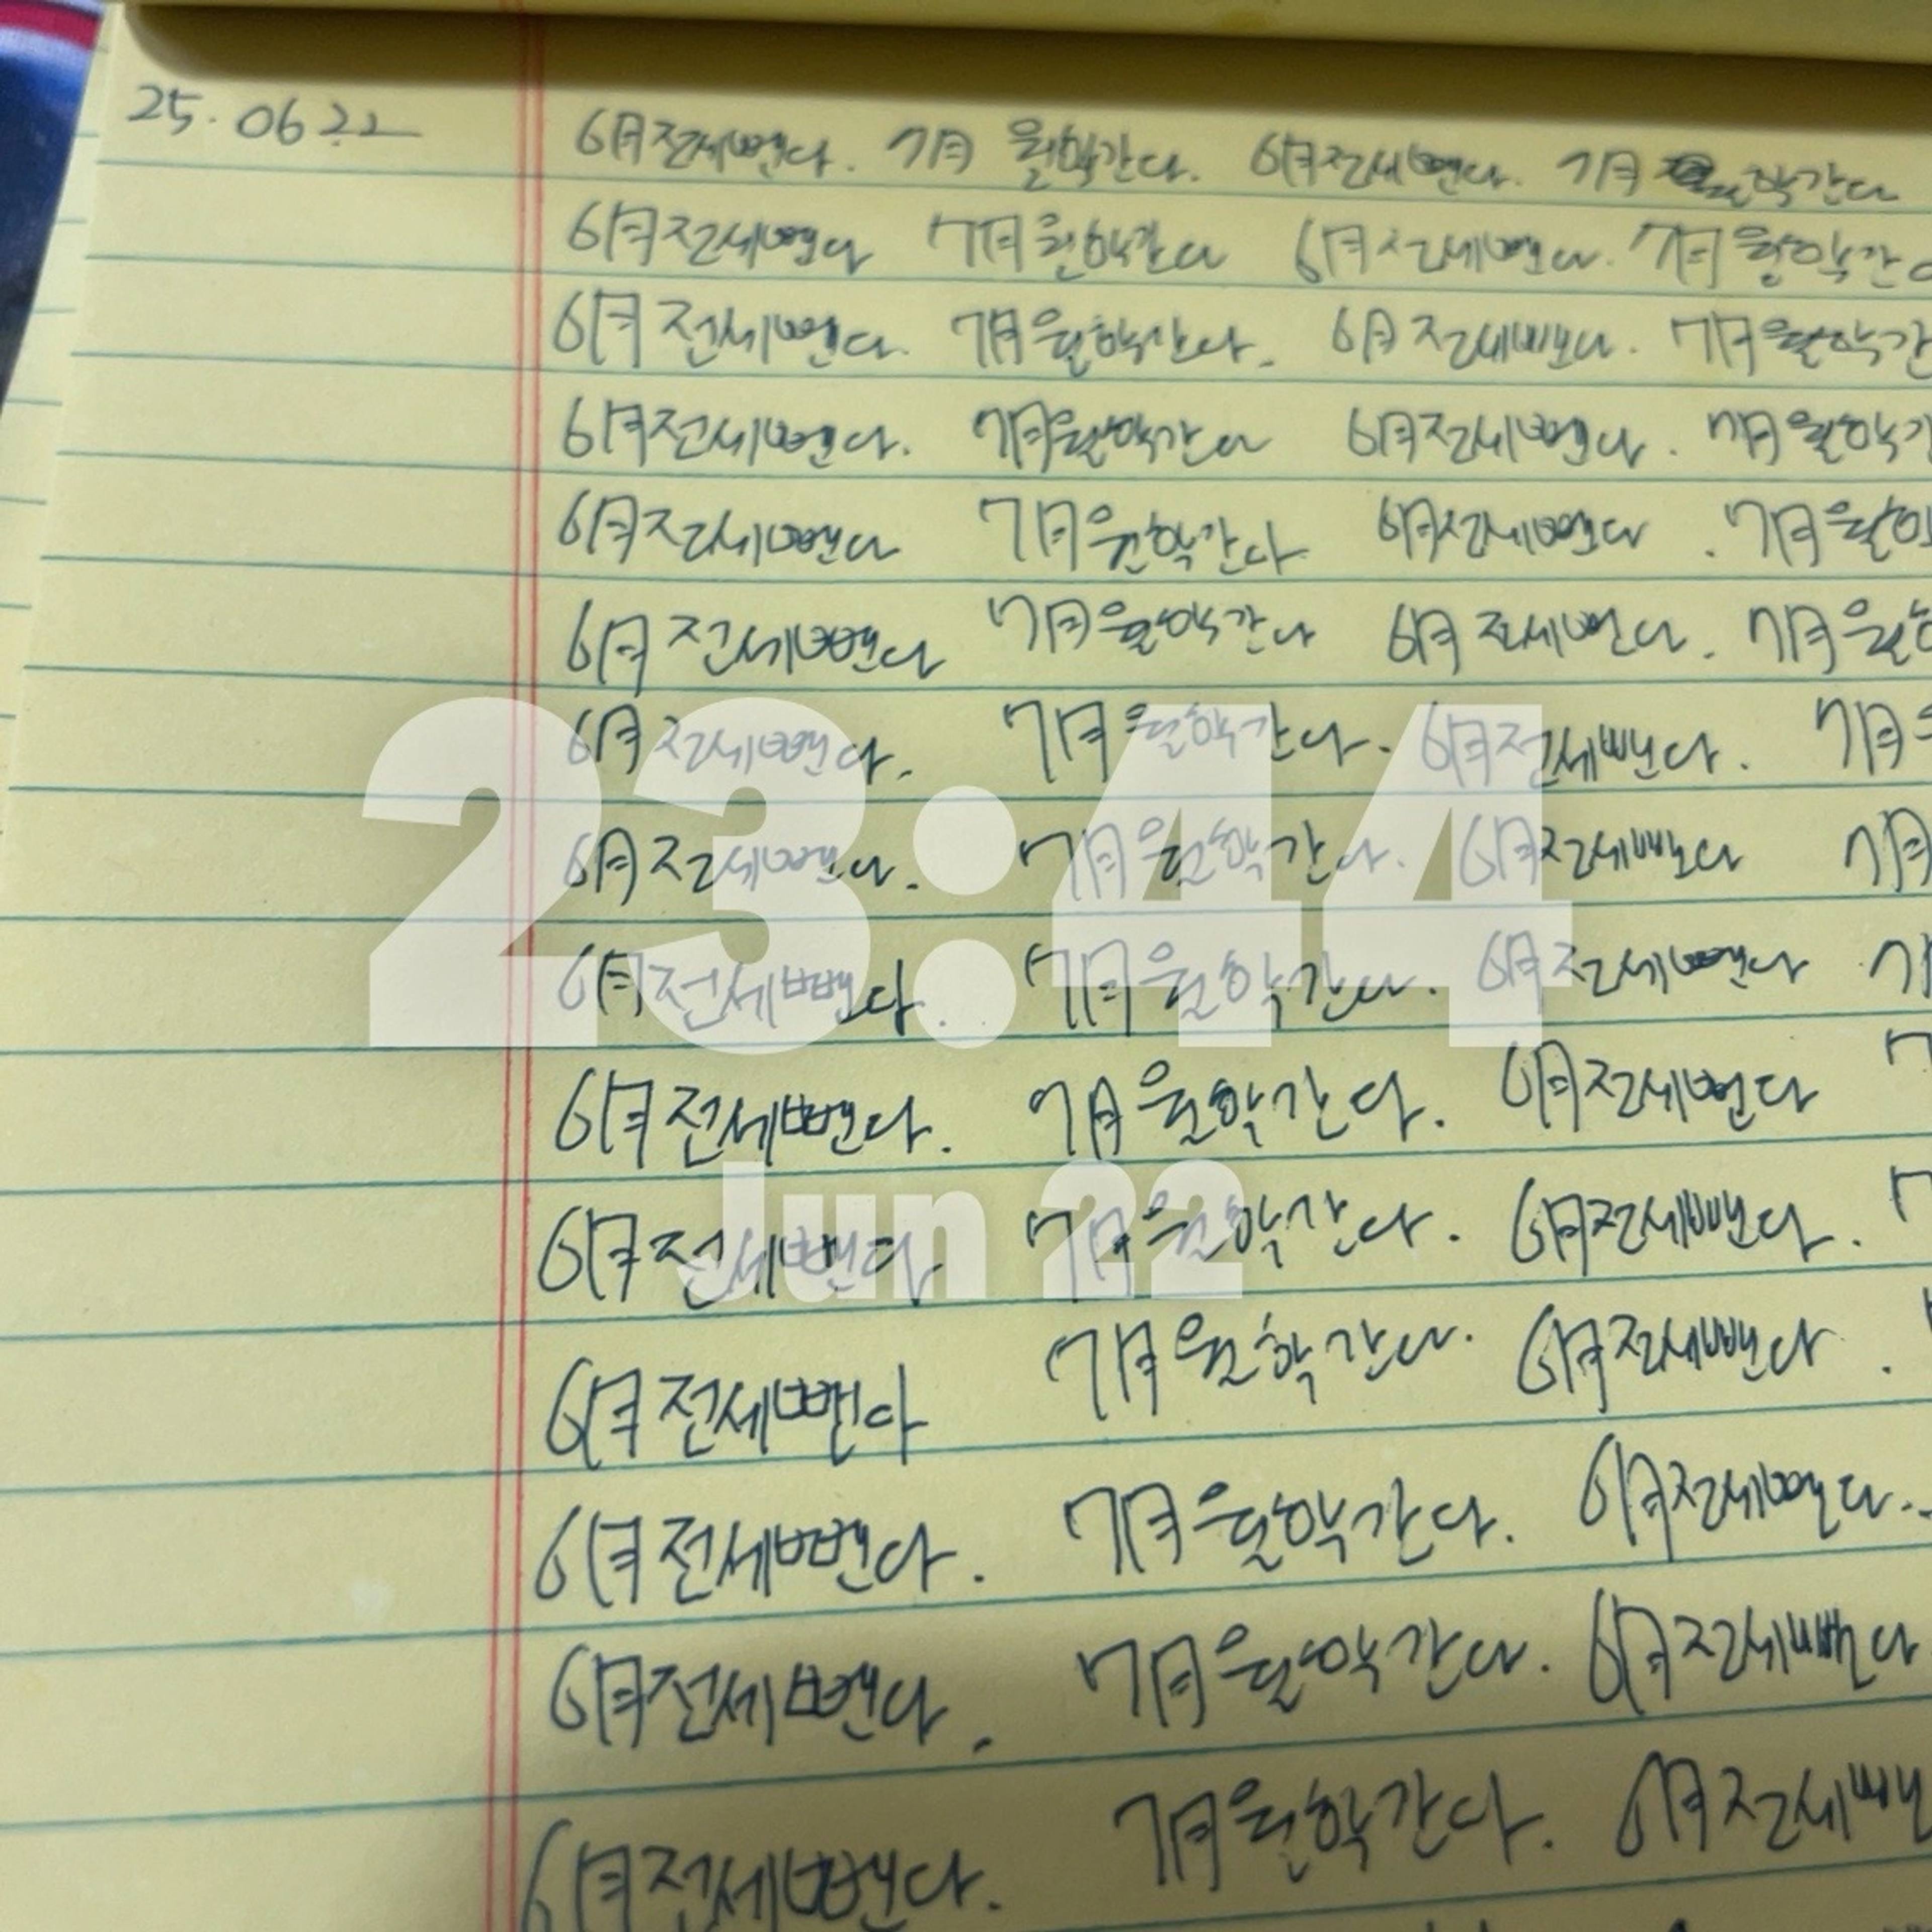 25.06.22 6月전세뺀다. 7月 월학간다. 6月전세뺀다. 7月 월학간다
6月전세뺀다 7月월학간다 6月전세뺀다. 7月월학간
6月전세뺀다. 7月월학간다. 6月전세뺀다. 7月월학간
6月전세뺀다. 7月월학간다 6月전세뺀다. 7月월학
6月전세뺀다 7月월학간다 6月전세뺀다. 7月월
6月전세뺀다 7月월학간다 6月전세뺀다. 7月월
6月전세뺀다. 7月월학간다. 6月전세뺀다. 7月
6月전세뺀다. 7月월학간다. 6月전세뺀다 7月
23:44
6月전세뺀다. 7月월학간다. 6月전세뺀다
6月전세뺀다. 7月월학간다. 6月전세뺀다
Jun 22
6月전세뺀다 7月월학간다. 6月전세뺀다.
6月전세뺀다 7月월학간다. 6月전세뺀다.
6月전세뺀다. 7月월학간다. 6月전세뺀다.
6月전세뺀다. 7月월학간다. 6月전세뺀다
6月전세뺀다. 7月월학간다. 6月전세뺀